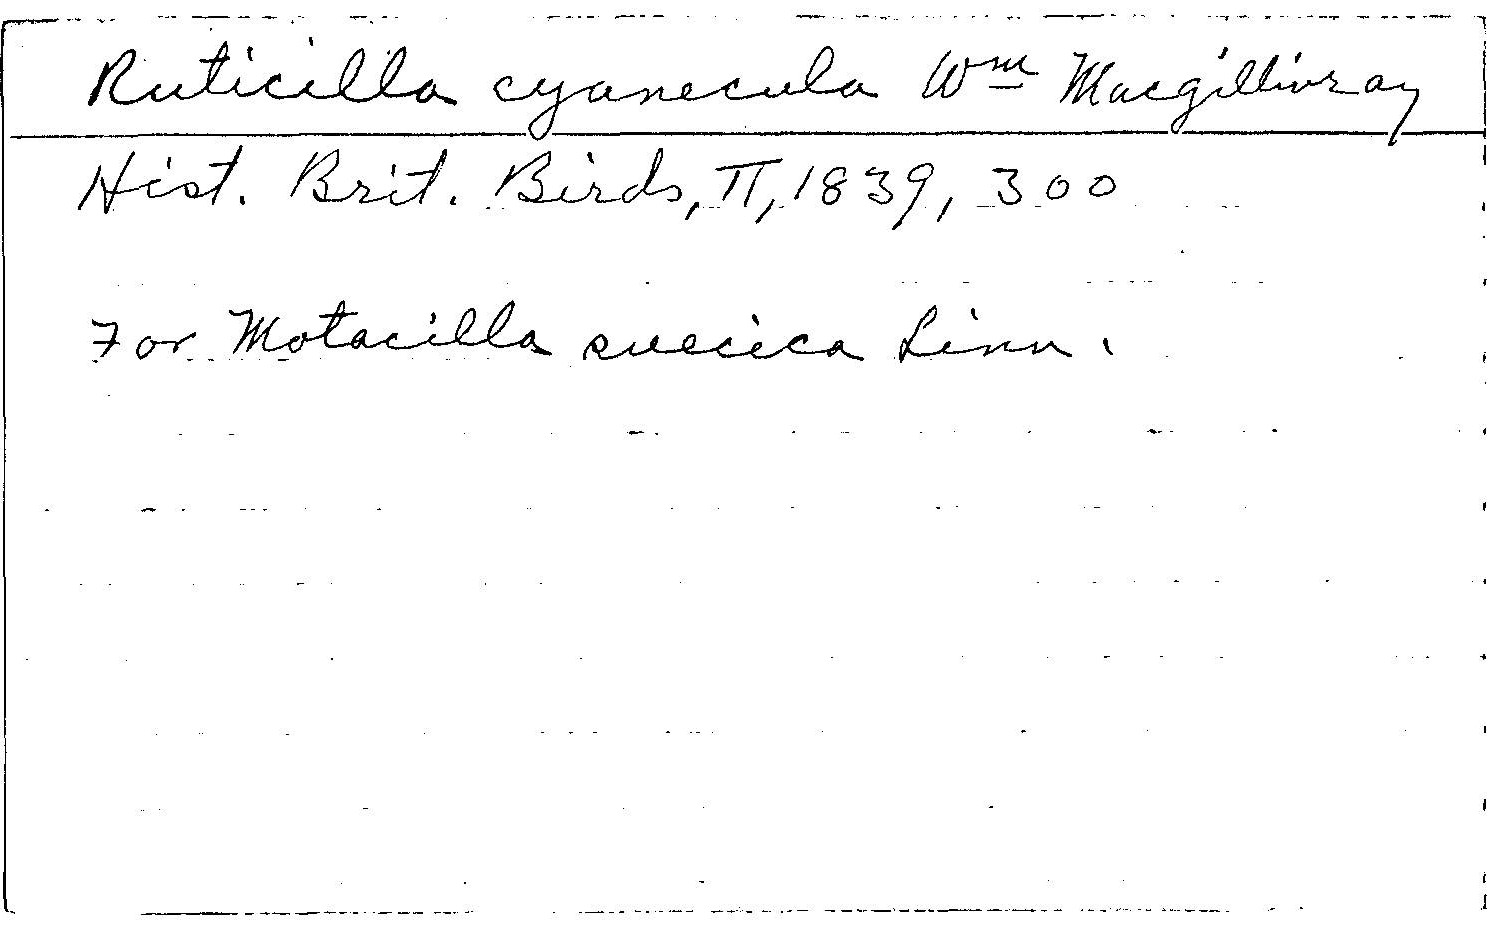 Ruticilla cyanecula Wm Macgillivray
Hist. Brit. Birds, II, 1839, 300
For Motacilla suecica Linn.